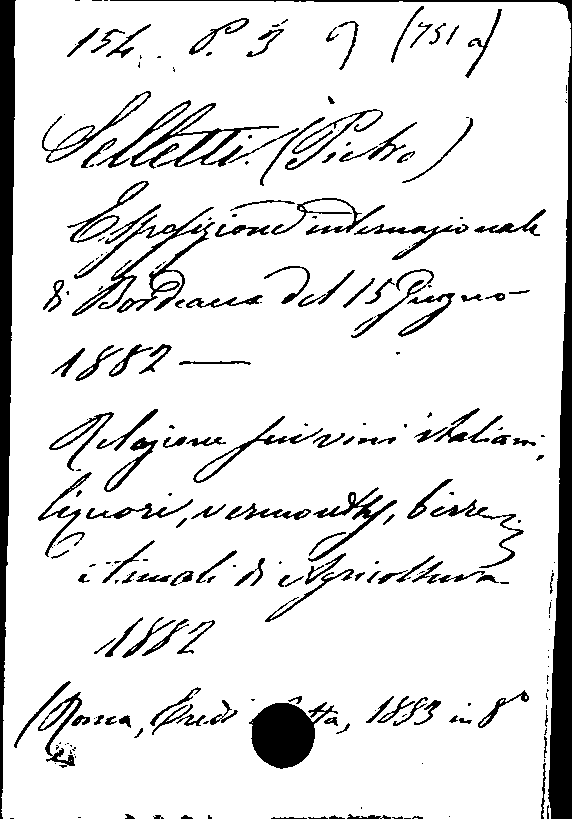 154. P. 3 9 (751 a)
Selletti (Pietro)
Esposizione internazionale
di Bordeaux del 15 Giugno
1882 —
Relazione sui vini italiani,
liquori, vermouths, birre
Annali di Agricoltura
1882
(Roma, Eredi Botta, 1883 in 8°